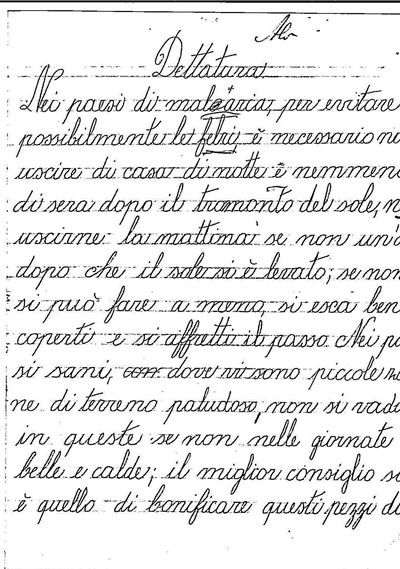 Dettatura
Nei paesi di malaaria, per evitare
possibilmente le febri, è necessario no
uscire di casa di notte e nemmeno
di sera dopo il tramonto del sole, n
uscirne la mattina se non un'o
dopo che il sole si è levato; se non
si può fare a meno, si esca ben
coperti e si affretti il passo Nei pa
si sani, con dove vi sono piccole
ne di terreno paludoso, non si vada
in queste se non nelle giornate
belle e calde; il miglior consiglio
è quello di bonificare questi pezzi di